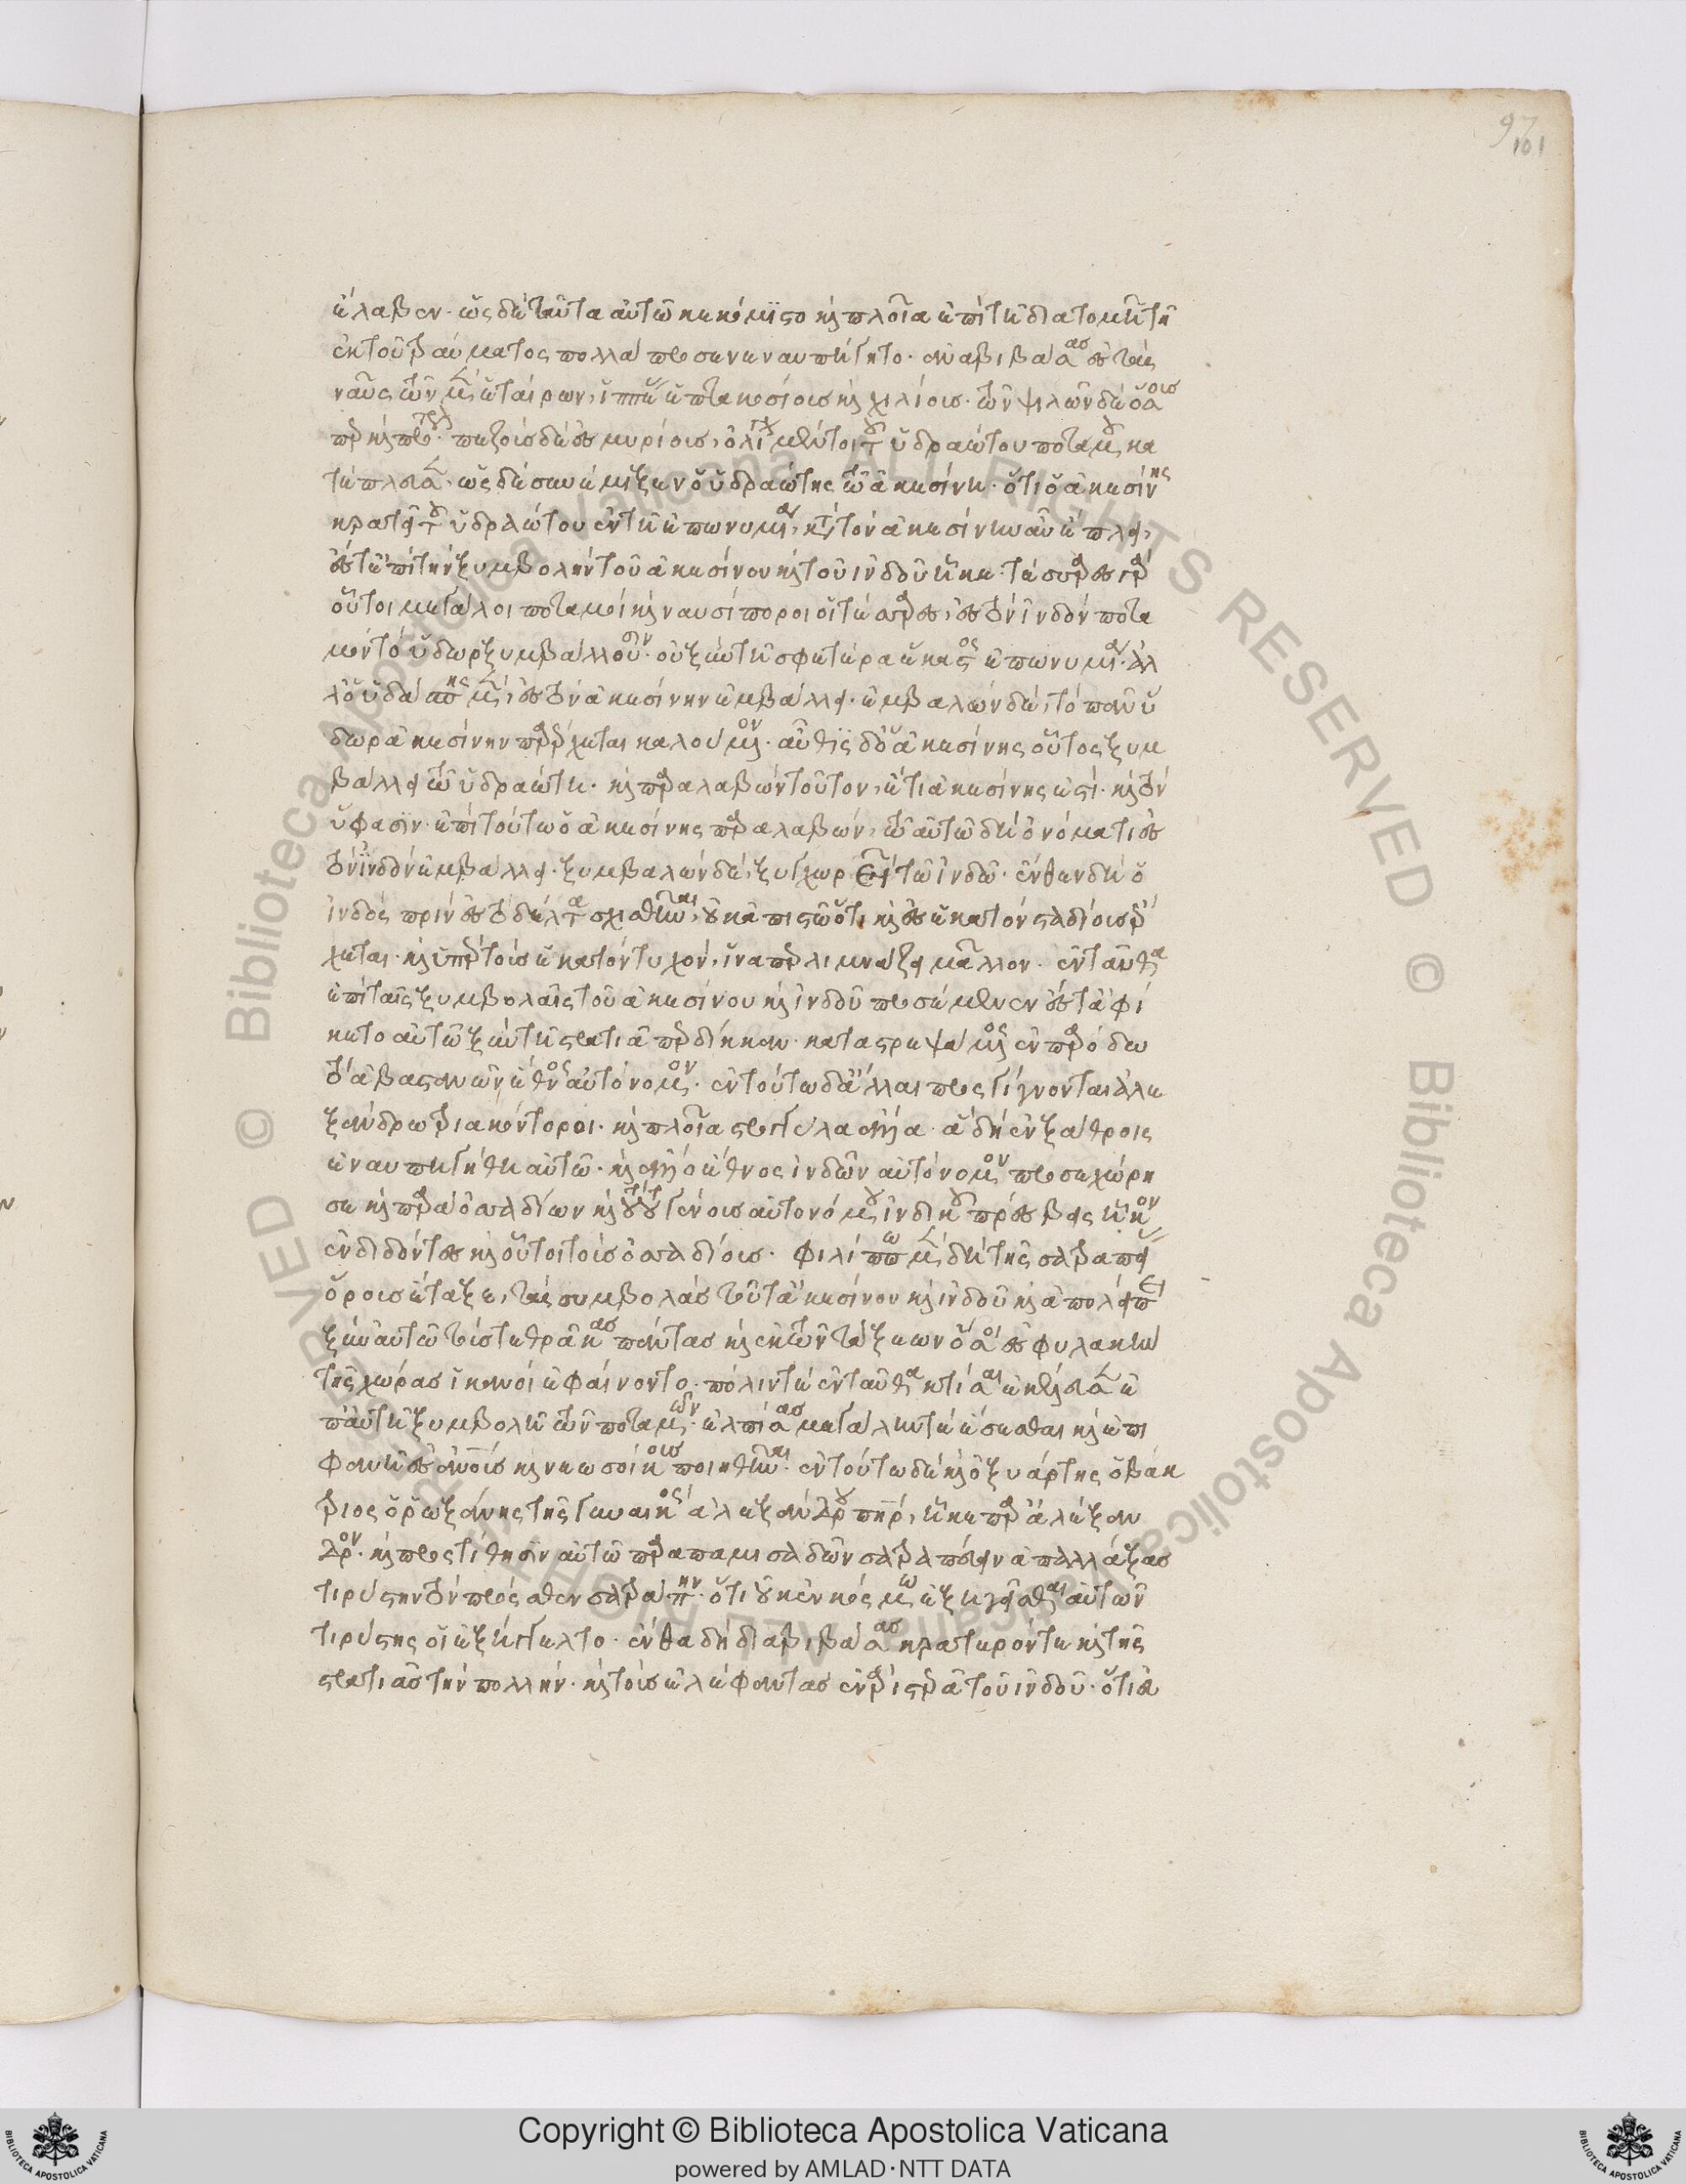 97
101
ἔλαβεν· ὡς δὲ ταῦτα αὐτῷ κεκόμιστο καὶ πλοῖα ἐπὶ τῇ διατριβῇ τῇ
ἐκ τοῦ τραύματος πολλὰ προσενεναυπήγητο· ἀναβιβάσας ἐς τὰς
ναῦς τῶν μὲν ἑταίρων, ἱππέας ἑπτακοσίους καὶ χιλίους· τῶν ψιλῶν δὲ ὅσους
περ καὶ πρότερον· πεζοὺς δὲ ἐς μυρίους, ὀλίγον μέν τι τῷ ὑδραώτῃ ποταμῷ κα
τέπλευσεν· ὡς δὲ συνέμιξεν ὁ ὑδραώτης τῷ ἀκεσίνῃ· ὅτι ὁ ἀκεσίνης
κρατεῖ τοῦ ὑδραώτου ἐν τῇ ἐπωνυμίᾳ, κατὰ τὸν ἀκεσίνην αὖ ἔπλει,
ἔς τε ἐπὶ τὴν ξυμβολὴν τοῦ ἀκεσίνου καὶ τοῦ ἰνδοῦ ἧκε· τέσσαρες γὰρ
οὗτοι μεγάλοι ποταμοὶ καὶ ναυσίποροι οἱ τέσσαρες, ἐς τὸν ἰνδὸν ποτα
μὸν τὸ ὕδωρ ξυμβάλλουσιν· οὐ ξὺν τῇ σφετέρᾳ ἕκαστος ἐπωνυμίᾳ· ἀλ
λὰ ὁ ὑδάσπης μὲν, ἐς τὸν ἀκεσίνην ἐμβάλλει· ἐμβαλὼν δὲ, τὸ πᾶν ὕ
δωρ ἀκεσίνην παρέχεται καλούμενον· αὖθις δὲ ὁ ἀκεσίνης οὗτος ξυμ
βάλλει τῷ ὑδραώτῃ· καὶ παραλαβὼν τοῦτον, ἔτι ἀκεσίνης ἐστί· καὶ τὸν
ὕφασιν· ἐπὶ τούτῳ ὁ ἀκεσίνης παραλαβών, τῷ αὑτοῦ δὴ ὀνόματι ἐς
τὸν ἰνδὸν ἐμβάλλει· ξυμβαλὼν δὲ, ξυγχωρεῖ τῷ ἰνδῷ· ἔνθεν δὴ ὁ
ἰνδὸς πρὶν ἐς τὸ δέλτα σχισθῆναι, οὐκ ἀπιστῶ ὅτι καὶ ἐς ἑκατὸν σταδίους ἔρ
χεται· καὶ ὑπὲρ τοὺς ἑκατὸν τυχὸν, ἵνα περ λιμνάζει μᾶλλον· ἐνταῦθα
ἐπὶ ταῖς ξυμβολαῖς τοῦ ἀκεσίνου καὶ ἰνδοῦ προσέμενεν ἔς τε ἀφί
κετο αὐτῷ ξὺν τῇ στρατιᾷ περδίκκας· καταστρεψάμενος ἐν παρόδῳ
τὸ ἀβαστανῶν ἔθνος αὐτόνομον· ἐν τούτῳ δὲ ἄλλαι προσγίγνονται ἀλε
ξάνδρῳ τριακόντοροι· καὶ πλοῖα στρογγύλα ἄλλα· ἃ δὴ ἐν ξάθροις
ἐναυπηγήθη αὐτῷ· καὶ ἄλλο ἔθνος ἰνδῶν αὐτόνομον προσεχώρη
σε καὶ παρὰ ὀσσαδίων καὶ τούτου γένους αὐτονόμου ἰνδικοῦ πρέσβεις ἧκον
ἐνδιδόντες καὶ οὗτοι τοὺς ὀσσαδίους· φιλίππῳ μὲν δὴ τῆς σατραπείας
ὅρους ἔταξε, τὰς συμβολὰς τοῦ τε ἀκεσίνου καὶ ἰνδοῦ καὶ ἀπολείπει
ξὺν αὐτῷ τούς τε θρᾷκας πάντας καὶ ἐκ τῶν τάξεων ὅσοι ἐς φυλακὴν
τῆς χώρας ἱκανοὶ ἐφαίνοντο· πόλιν τε ἐνταῦθα κτίσαι ἐκέλευσεν ἐ
π' αὐτῇ ξυμβολῇ τῶν ποταμῶν· ἐλπίσας μεγάλην τε ἔσεσθαι καὶ ἐπι
φανῆ ἐς ἀνθρώπους καὶ νεωσοίκους ποιηθῆναι· ἐν τούτῳ δὲ καὶ ὀξυάρτης ὁ βάκ
τριος ὁ ῥωξάνης τῆς γυναικὸς ἀλεξάνδρου πατήρ, ἧκε παρὰ ἀλέξαν
δρον· καὶ προστίθησιν αὐτῷ παραπαμισαδῶν σατραπεύειν ἀπαλλάξας
τιρύστην τὸν πρόσθεν σατράπην· ὅτι οὐκ ἐν κόσμῳ ἐξηγεῖσθαι αὐτῶν
τιρύστης οἱ ἐξήγγελτο· ἔνθα δὴ διαβιβάσας κρατερόν τε καὶ τῆς
στρατιᾶς τὴν πολλήν· καὶ τοὺς ἐλέφαντας ἐν ἀριστερᾷ τοῦ ἰνδοῦ· ὅτι εὐ
Copyright © Biblioteca Apostolica Vaticana
powered by AMLAD·NTT DATA